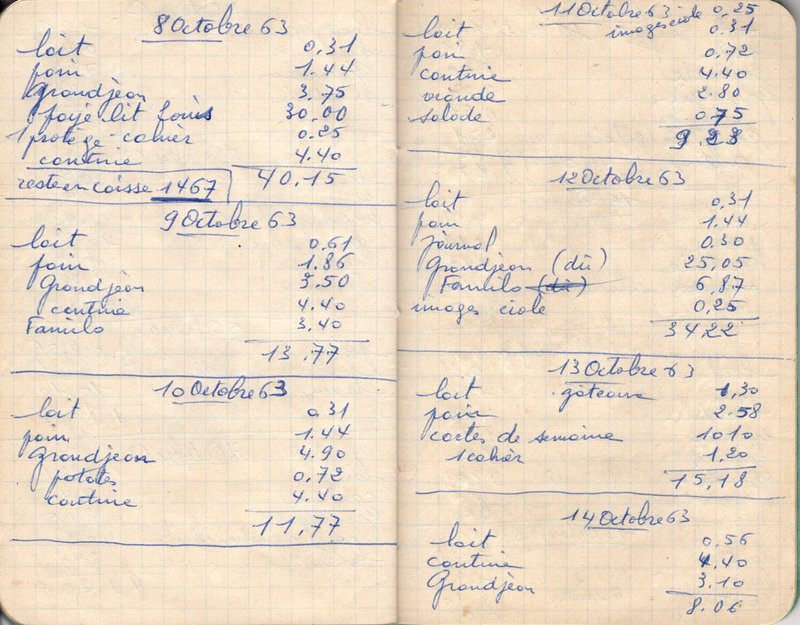 8 Octobre 63
lait 0,31
pain 1.44
Grandjean 3.75
payé lit Louis 30.00
1 protège-cahier 0.25
cantine 4.40
reste en caisse 1467 40,15
9 Octobre 63
lait 0,61
pain 1.86
Grandjean 3.50
cantine 4.40
Familo 3.40
13,77
10 Octobre 63
lait 0,31
pain 1.44
Grandjean 4.90
patates 0.72
cantine 4.40
11,77
11 Octobre 63
images école 0,25
lait 0.31
pain 0,72
cantine 4.40
viande 2.80
salade 0.75
9.23
12 Octobre 63
lait 0,31
pain 1.44
journal 0.30
Grandjean (dû) 25,05
Familo (dû) 6,87
images école 0,25
34,22
13 Octobre 63
lait gâteaux 1,30
pain 2.58
cartes de semaine 10 10
1 cahier 1,20
15,18
14 Octobre 63
lait 0,56
cantine 4.40
Grandjean 3.10
8.06